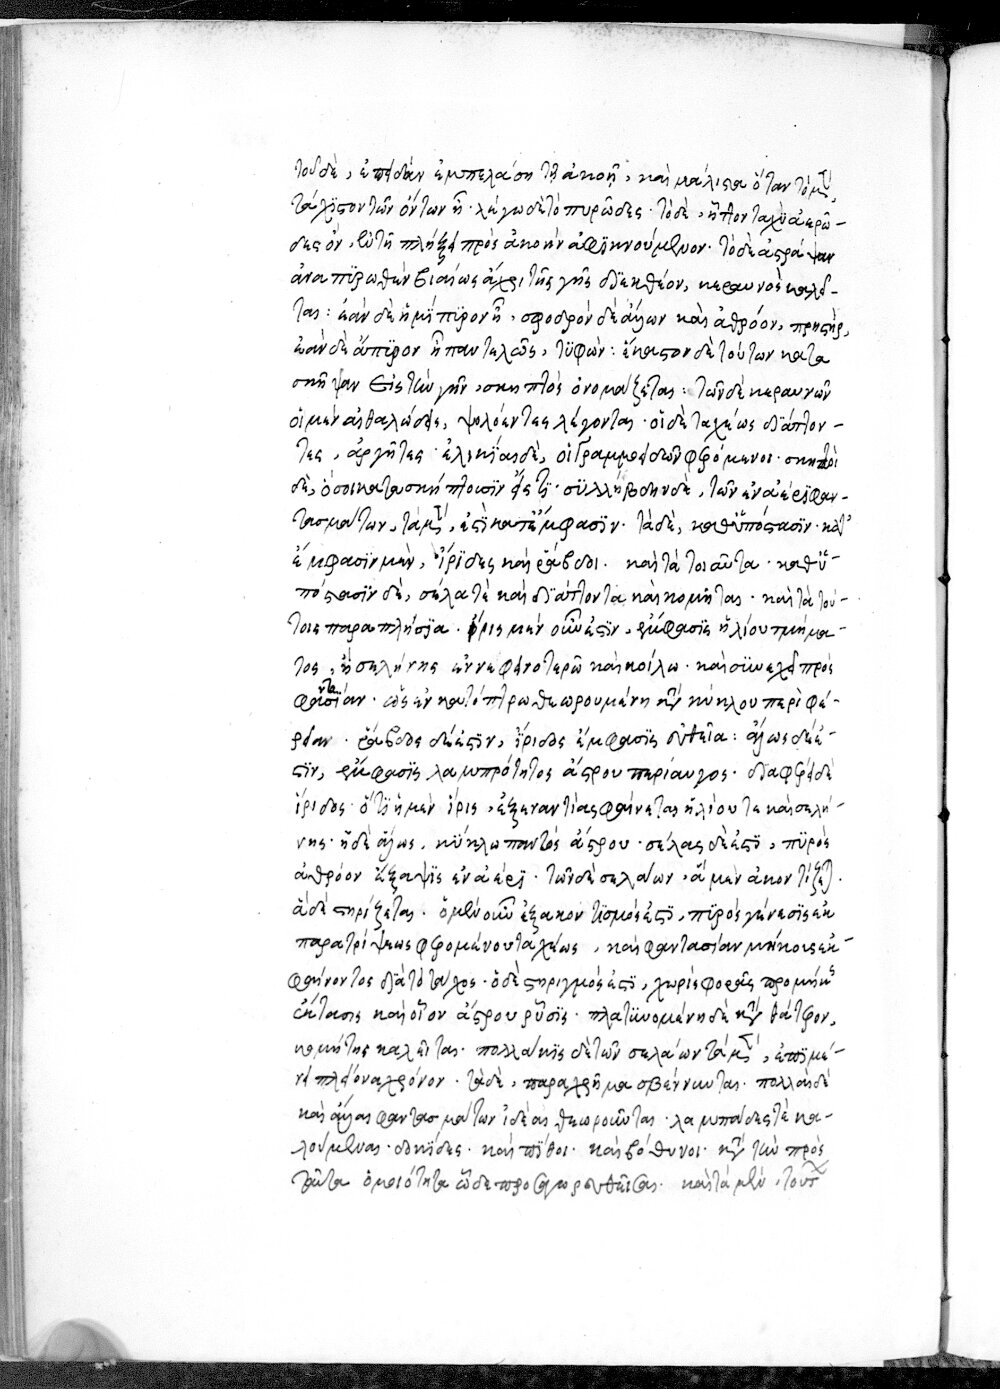 τοῦ δὲ, ἐπειδὰν ἐμπελάση τῇ ἀκοῇ, καὶ μάλιστα ὅταν τὸ μὲν
τάχιστον τῶν ὄντων ᾖ· λέγω δὲ τὸ πυρῶδες· τὸ δὲ, ἧττον ταχὺ ἀερῶ-
δες ὂν, ἐν τῇ πλήξει πρὸς ἀκοὴν ἀφικνούμενον· τὸ δὲ ἀστράψαν
ἀναπυρωθὲν βιαίως ἄχρι τῆς γῆς διεκθέον, κεραυνὸς καλεῖ-
ται: ἐὰν δὲ ἡμίπυρον ᾖ, σφοδρὸν δὲ ἄλλων καὶ ἀθρόον, πρηστήρ,
ἐὰν δὲ ἄπυρον ᾖ παντελῶς, τυφών: ἕκαστον δὲ τούτων κατα
σκῆψαν εἰς τὴν γῆν, σκηπτὸς ὀνομάζεται: τῶν δὲ κεραυνῶν
οἱ μὲν αἰθαλώδεις, ψολόεντες λέγονται· οἱ δὲ ταχέως διάττον-
τες, ἀργῆτες· ἑλικίαι δὲ, οἱ γραμμοειδῶς φερόμενοι· σκηπτοὶ
δὲ, ὅσοι κατασκήπτουσιν εἴς τι· συλλήβδην δὲ, τῶν ἐν ἀέρι φαν-
τασμάτων, τὰ μὲν, ἐστὶ κατ' ἔμφασιν· τὰ δὲ, καθ' ὑπόστασιν· κατ'
ἔμφασιν μὲν, ἴριδες καὶ ῥάβδοι. καὶ τὰ τοιαῦτα· καθ' ὑ-
πόστασιν δὲ, σέλα τὲ καὶ διάττοντα καὶ κομῆται· καὶ τὰ τού-
τοις παραπλήσια. ἶρις μὲν οὖν ἐστὶν, ἔμφασις ἡλίου τμήμα-
τος, ἢ σελήνης ἐν νέφει νοτερῶ καὶ κοίλω· καὶ συνεχεῖ πρὸς
φαντασίαν· ὡς ἐν κατόπτρω θεωρουμένη κατὰ κύκλου περιφέ-
ρειαν. ῥάβδος δέ ἐστιν, ἴριδος ἔμφασις εὐθεῖα: ἅλως δέ ἐ-
στιν, ἔμφασις λαμπρότητος ἄστρου περίαυγος· διαφέρει δὲ
ἴριδος· ὅτι ἡ μὲν ἶρις, ἐξ ἐναντίας φαίνεται ἡλίου τε καὶ σελή-
νης· ἡ δὲ ἅλως, κύκλω παντὸς ἄστρου· σέλας δὲ ἐστὶ, πυρὸς
ἀθρόου ἔξαψις ἐν ἀέρι· τῶν δὲ σελάων, ἃ μὲν ἀκοντίζεται.
ἃ δὲ στηρίζεται. ὁ μὲν οὖν ἐξακοντισμός ἐστι, πυρὸς γένεσις ἐκ
παρατρίψεως φερομένου ταχέως, καὶ φαντασίαν μήκους ἐμ-
φαίνοντος διὰ τὸ τάχος· ὁ δὲ στηριγμός ἐστι, χωρὶς φορᾶς προμήκης
ἔκτασις καὶ οἷον ἄστρου ῥύσις· πλατυνομένη δὲ κατὰ θάτερον,
κομήτης καλεῖται. πολλάκις δὲ τῶν σελάων τὰ μὲν, ἐπιμέ-
νει πλείονα χρόνον· τὰ δὲ, παραχρῆμα σβέννυται. πολλαὶ δὲ
καὶ ἄλλαι φαντασμάτων ἰδέαι θεωροῦνται· λαμπάδες τὲ κα-
λούμεναι· δοκίδες· καὶ πίθοι· καὶ βόθυνοι· κατὰ τὴν πρὸς
ταῦτα ὁμοιότητα ὧδε προσαγορευθεῖσαι. καὶ τὰ μὲν, τούτων